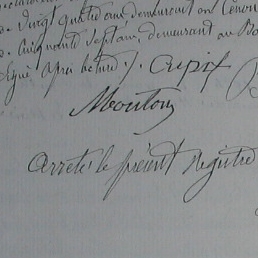 de vingt quatre ans demeurant au
de cinquante sept ans, demeurant au
signé après lecture). Crépit
Mouton
arrêté le présent Registre